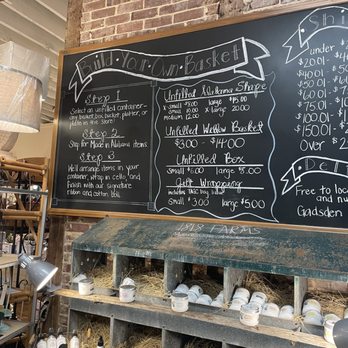 Build • Your • Own • Basket
Step 1
Select an unfilled container-
any basket, box, bucket, platter, or
platin in the store!
Step 2
Shop for Made in Alabama items
Step 3
We'll arrange items in your
container, wrap in cello, and
finish with our signature
ribbon and cotton boll
Unfilled Alabama Shape
x small $5.00 large $15.00
small 10.00 x large 20.00
medium 12.00
Unfilled Willow Basket
$3.00 - $14.00
Unfilled Box
small $6.00 large $8.00
Gift Wrapping
small $3.00 large $5.00
Shi
under
$20.01
$30.01
$40.01
$50.01
60.01
$75.01
100.01
$150.01
Over $2
Del
Free to loca
and nu
Gadsden
1818 FARMS